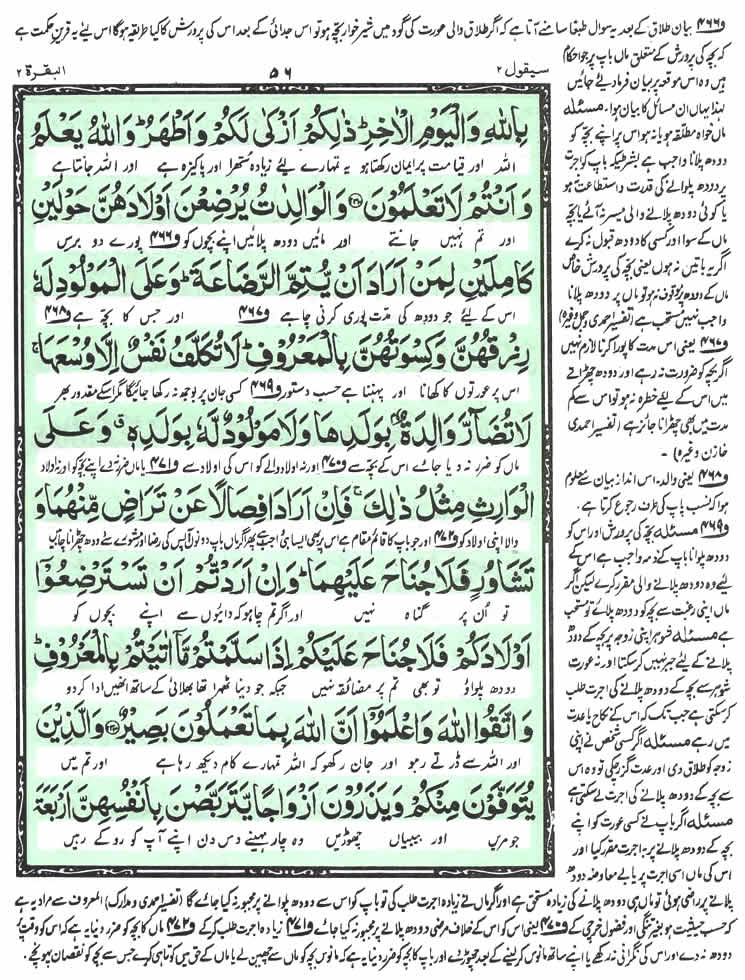 و۴۶۶ بیان طلاق کے بعد یہ سوال طبعا سامنے آتا ہے کہ اگر طلاق والی عورت کی گود میں شیر خوار بچہ ہو تو اس جدائی کے بعد اس کی پرورش کا کیا طریقہ ہوگا اس لیے یہ قرین حکمت ہے
کہ بچہ کی پرورش کے متعلق ماں باپ پر جو احکام
ہیں وہ اس موقعہ پر بیان فرما دیئے جائیں
لہٰذا یہاں ان مسائل کا بیان ہوا۔ مسئلہ
ماں خواہ مطلقہ ہو یا نہ ہو اس پر اپنے بچہ کو
دودھ پلانا واجب ہے بشرطیکہ باپ کو اجرت
پر دودھ پلوانے کی قدرت و استطاعت نہ ہو
یا کوئی دودھ پلانے والی میسر نہ آئے یا بچہ
ماں کے سوا اور کسی کا دودھ قبول نہ کرے
اگر یہ باتیں نہ ہوں یعنی بچہ کی پرورش خاص
ماں کے دودھ پر موقوف نہ ہو تو ماں پر دودھ پلانا
واجب نہیں مستحب ہے (تفسیر احمدی و جمل وغیرہ)
و۴۶۷ یعنی اس مدت کا پورا کرنا لازم نہیں
اگر بچہ کو ضرورت نہ رہے اور دودھ چھڑانے
میں اس کے لیے خطرہ نہ ہو تو اس سے کم
مدت میں بھی چھڑانا جائز ہے (تفسیر احمدی
خازن وغیرہ)۔
و۴۶۸ یعنی والد، اس انداز بیان سے معلوم
ہوا کہ نسب باپ کی طرف رجوع کرتا ہے۔
و۴۶۹ مسئلہ بچہ کی پرورش اور اس کو
دودھ پلوانا باپ کے ذمہ واجب ہے اس کے
لیے وہ دودھ پلانے والی مقرر کرے لیکن اگر
ماں اپنی رغبت سے بچہ کو دودھ پلائے تو مستحب
ہے مسئلہ شوہر اپنی زوجہ پر بچہ کے دودھ
پلانے کے لیے جبر نہیں کر سکتا اور نہ عورت
شوہر سے بچہ کے دودھ پلانے کی اجرت طلب
کر سکتی ہے جب تک کہ اس کے نکاح یا عدت
میں رہے مسئلہ اگر کسی شخص نے اپنی
زوجہ کو طلاق دی اور عدت گزر چکی تو وہ اس
سے بچہ کے دودھ پلانے کی اجرت لے سکتی ہے
مسئلہ اگر باپ نے کسی عورت کو اپنے
بچہ کے دودھ پلانے پر بہ اجرت مقرر کیا اور
اس کی ماں اسی اجرت پر یا بے معاوضہ دودھ
سیقول ۲
۵۶
البقرۃ ۲
بِاللّٰهِ وَالْیَوْمِ الْاٰخِرِ ذٰلِكُمْ اَزْكٰی لَكُمْ وَاَطْهَرُ وَاللّٰهُ یَعْلَمُ
اللہ اور قیامت پر ایمان رکھتا ہو یہ تمہارے لیے زیادہ ستھرا اور پاکیزہ ہے اور اللہ جانتا ہے
وَاَنْتُمْ لَا تَعْلَمُوْنَ وَالْوَالِدٰتُ یُرْضِعْنَ اَوْلَادَهُنَّ حَوْلَیْنِ
اور تم نہیں جانتے اور مائیں دودھ پلائیں اپنے بچوں کو و۴۶۶ پورے دو برس
كَامِلَیْنِ لِمَنْ اَرَادَ اَنْ یُّتِمَّ الرَّضَاعَةَ وَعَلَی الْمَوْلُوْدِ لَهٗ
اس کے لیے جو دودھ کی مدت پوری کرنی چاہے و۴۶۷ اور جس کا بچہ ہے و۴۶۸
رِزْقُهُنَّ وَكِسْوَتُهُنَّ بِالْمَعْرُوْفِ لَا تُكَلَّفُ نَفْسٌ اِلَّا وُسْعَهَا
اس پر عورتوں کا کھانا اور پہننا ہے حسب دستور و۴۶۹ کسی جان پر بوجھ نہ رکھا جائیگا مگر اس کے مقدور بھر
لَا تُضَآرَّ وَالِدَةٌ بِوَلَدِهَا وَلَا مَوْلُوْدٌ لَّهٗ بِوَلَدِهٖ وَعَلَی
ماں کو ضرر نہ دیا جائے اس کے بچہ سے و۴۷۰ اور نہ اولاد والے کو اس کی اولاد سے و۴۷۱ یا ماں ضرر نہ دے اپنے بچہ کو اور نہ اولاد
الْوَارِثِ مِثْلُ ذٰلِكَ فَاِنْ اَرَادَا فِصَالًا عَنْ تَرَاضٍ مِّنْهُمَا وَ
والا اپنی اولاد کو و۴۷۲ اور جو باپ کا قائم مقام ہے اس پر بھی ایسا ہی واجب ہے پھر اگر ماں باپ دونوں آپس کی رضا اور مشورے سے دودھ چھڑانا چاہیں
تَشَاوُرٍ فَلَا جُنَاحَ عَلَیْهِمَا وَاِنْ اَرَدْتُّمْ اَنْ تَسْتَرْضِعُوْٓا
تو اُن پر گناہ نہیں اور اگر تم چاہو کہ دائیوں سے اپنے بچوں کو
اَوْلَادَكُمْ فَلَا جُنَاحَ عَلَیْكُمْ اِذَا سَلَّمْتُمْ مَّآ اٰتَیْتُمْ بِالْمَعْرُوْفِ
دودھ پلواؤ تو بھی تم پر مضائقہ نہیں جبکہ جو دینا ٹھہرا تھا بھلائی کے ساتھ انھیں ادا کر دو
وَاتَّقُوا اللّٰهَ وَاعْلَمُوْٓا اَنَّ اللّٰهَ بِمَا تَعْمَلُوْنَ بَصِیْرٌ وَالَّذِیْنَ
اور اللہ سے ڈرتے رہو اور جان رکھو کہ اللہ تمہارے کام دیکھ رہا ہے اور تم میں
یُتَوَفَّوْنَ مِنْكُمْ وَیَذَرُوْنَ اَزْوَاجًا یَّتَرَبَّصْنَ بِاَنْفُسِهِنَّ اَرْبَعَةَ
جو مریں اور بیبیاں چھوڑیں وہ چار مہینے دس دن اپنے آپ کو روکے رہیں
پلانے پر راضی ہوئی تو ماں ہی دودھ پلانے کی زیادہ مستحق ہے اور اگر ماں نے زیادہ اجرت طلب کی تو باپ کو اس سے دودھ پلوانے پر مجبور نہ کیا جائے گا (تفسیر احمدی و مدارک) المعروف سے مراد یہ ہے
کہ حسب حیثیت ہو بغیر تنگی اور فضول خرچی کے و۴۷۰ یعنی اس کو اس کے خلاف مرضی دودھ پلانے پر مجبور نہ کیا جائے و۴۷۱ زیادہ اجرت طلب کر کے و۴۷۲ ماں کا بچہ کو ضرر دینا یہ ہے کہ اس کو وقت پر
دودھ نہ دے اور اس کی نگرانی نہ رکھے یا اپنے ساتھ مانوس کر لینے کے بعد چھوڑ دے اور باپ کا بچہ کو ضرر دینا یہ ہے کہ مانوس بچہ کو ماں سے چھین لے یا ماں کے حق میں کوتاہی کرے جس سے بچہ کو نقصان پہونچے۔